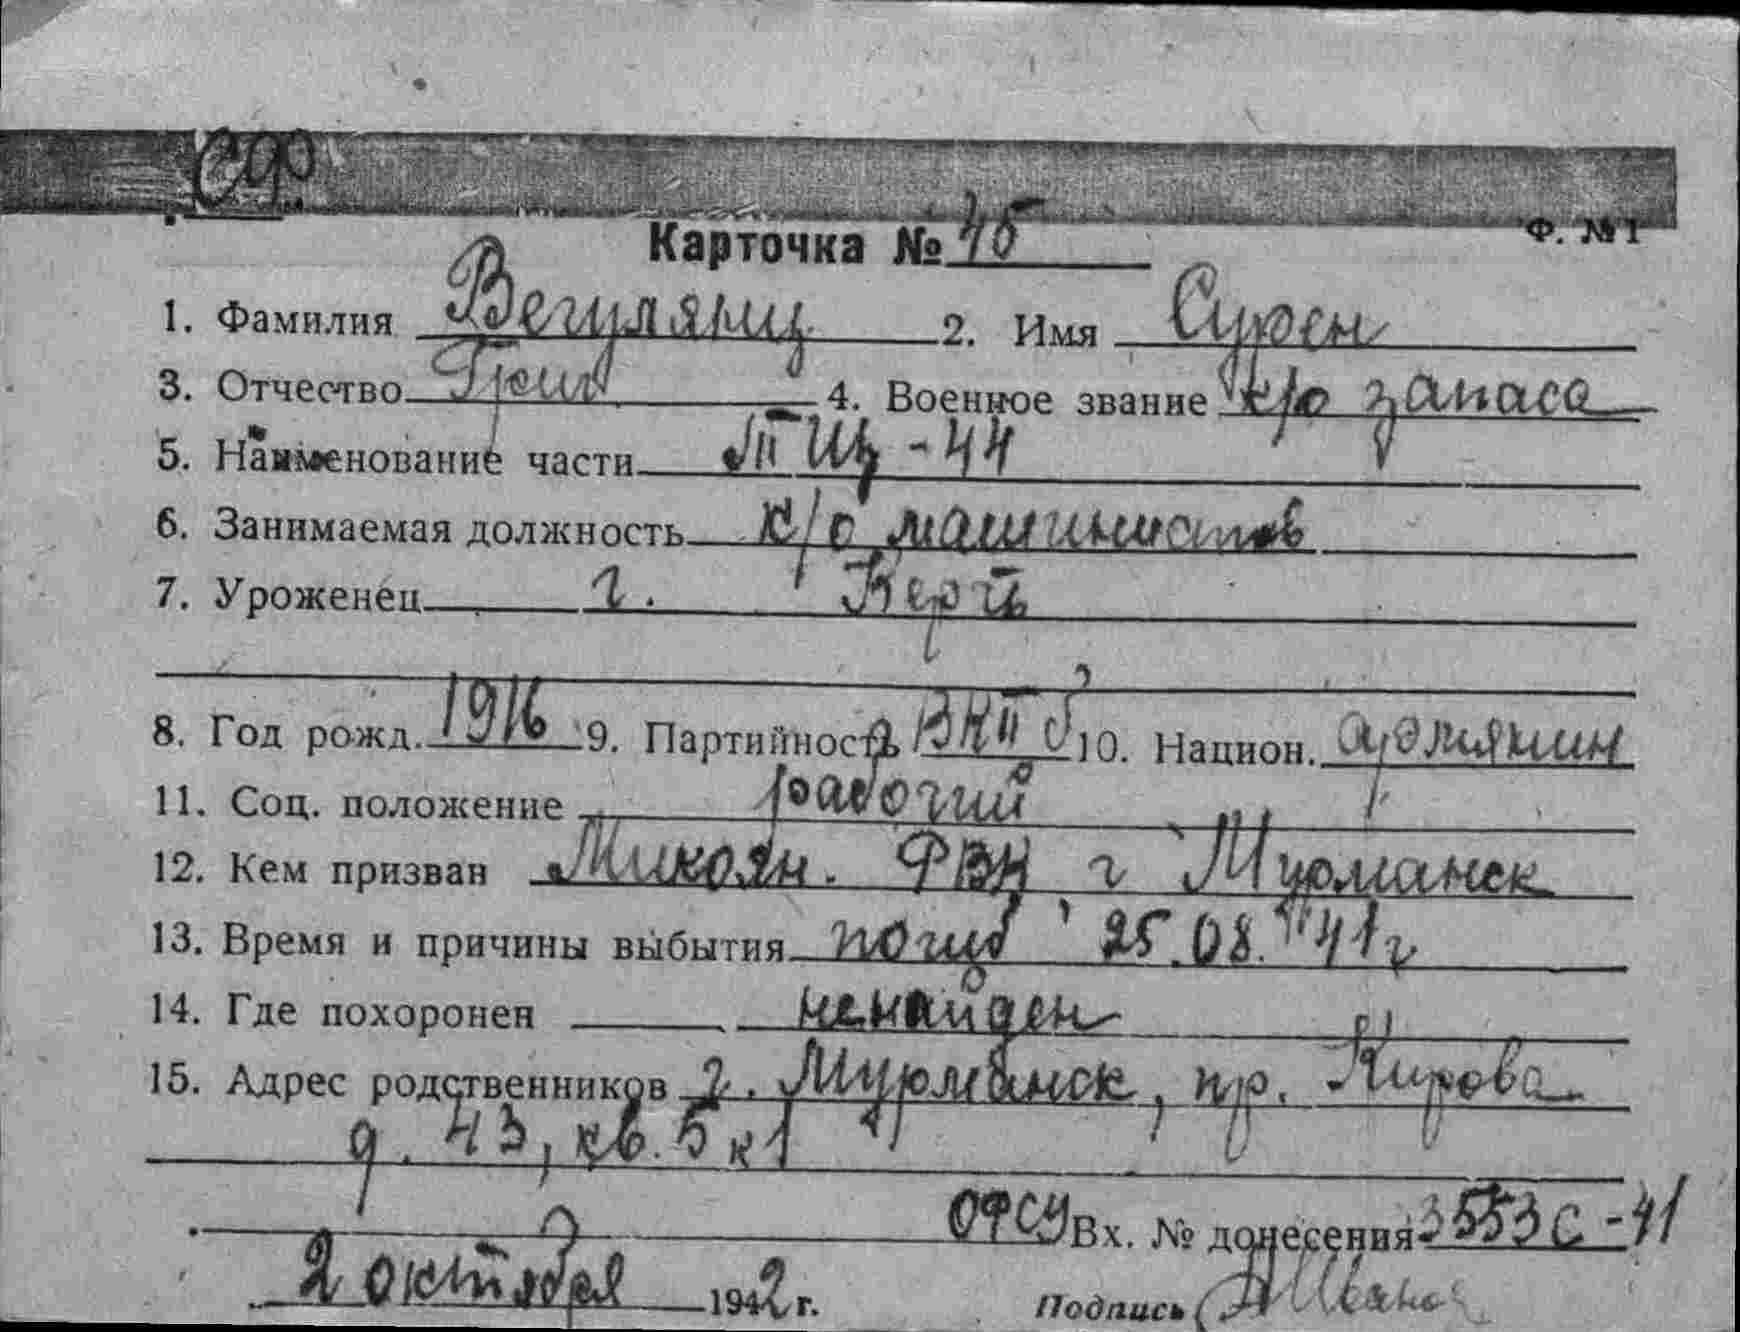 СФ
Ф. №1
Карточка № 45
1. Фамилия Вегулянц 2. Имя Сурен
3. Отчество Григ 4. Военное звание к/о запаса
5. Наименование части ТЩ-44
6. Занимаемая должность к/о машинистов
7. Уроженец г. Керчь
8. Год рожд. 1916 9. Партийность ВКПб 10. Национ. армянин
11. Соц. положение рабочий
12. Кем призван Микоян. ФВК г Мурманск
13. Время и причины выбытия погиб 25.08.41г
14. Где похоронен ненайден
15. Адрес родственников г. Мурманск, пр. Кирова
д. 43, кв. 5 к 1
ОФСУ Вх. № донесения 3553с-41
2 октября 1942 г. Подпись